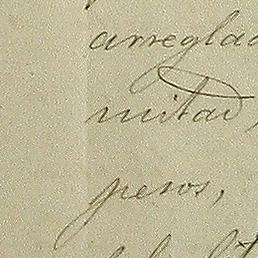 arreglad
mitad,
pesos,